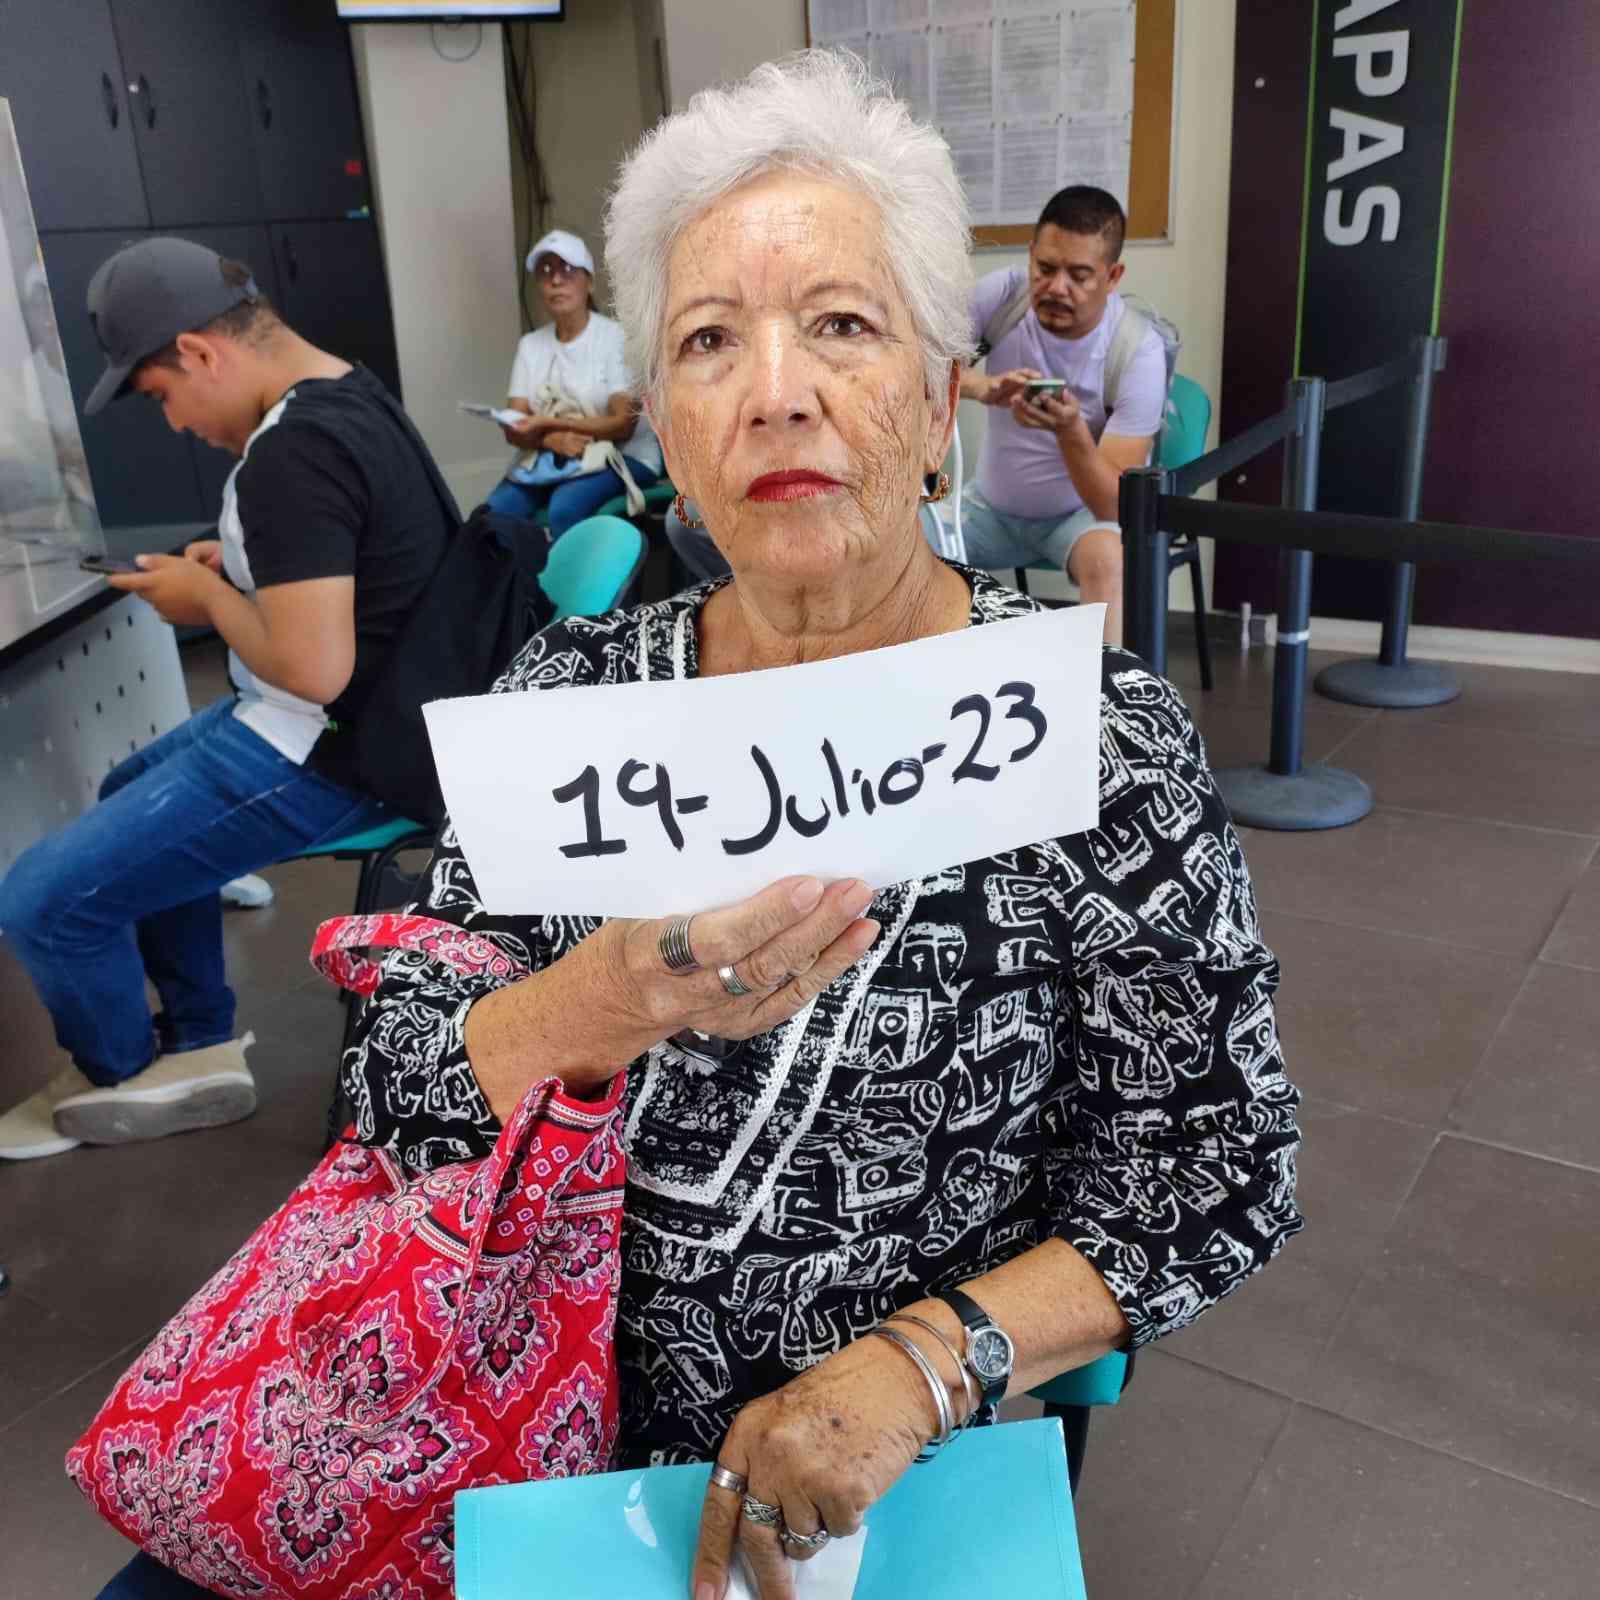 19-Julio-23
APAS